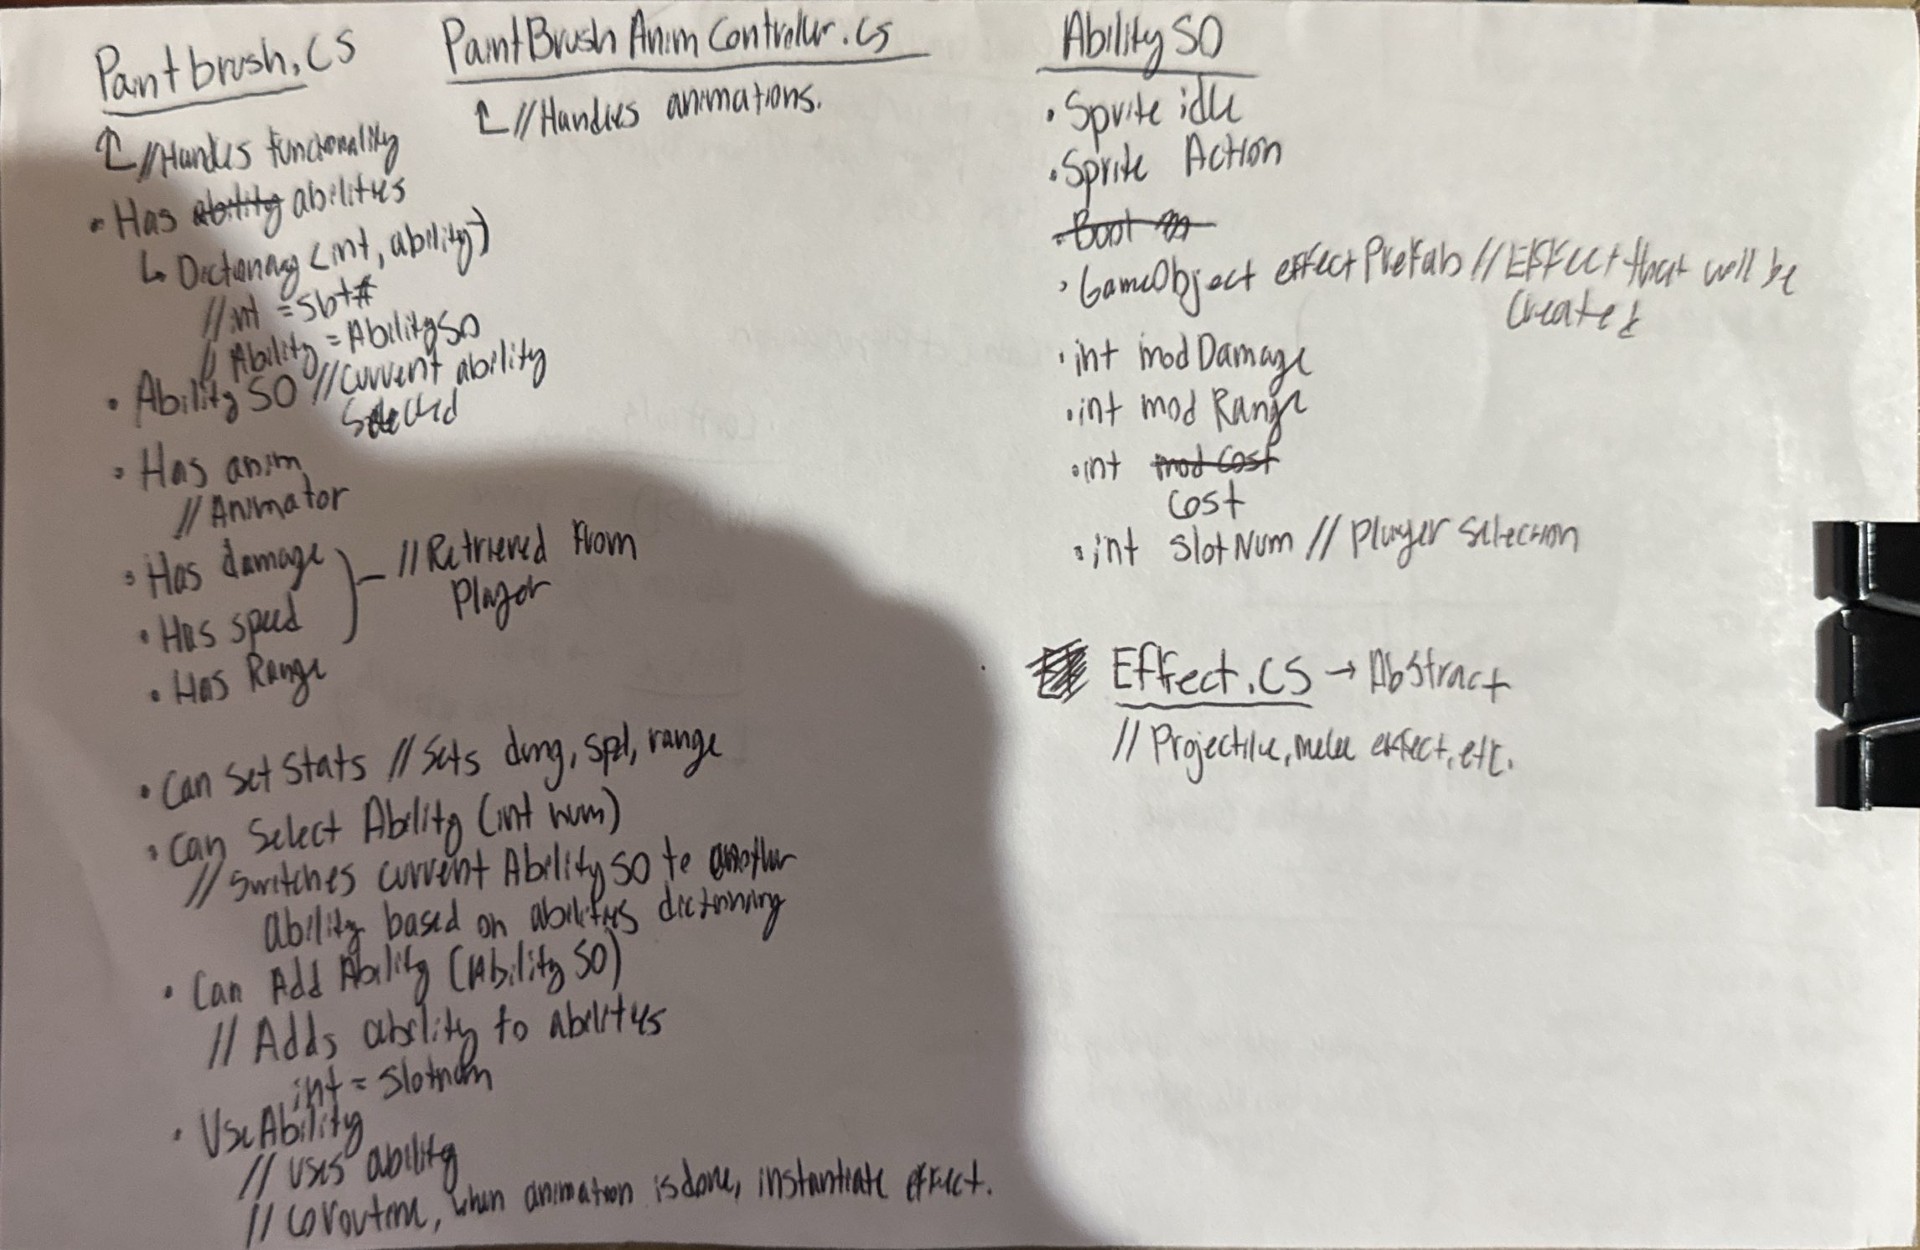 Paintbrush.CS
↑ //Handles functionality
• Has ability abilities
↳ Dictionary <int, ability>
//int = Slot#
// Ability = Ability SO
• Ability SO //current ability
Selected
• Has anim
// Animator
• Has damage
• Has speed
• Has Range
// Retrieved from
Player
• Can Set Stats // Sets dmg, spd, range
• Can Select Ability (int num)
// Switches current Ability SO to another
ability based on abilities dictionary
• Can Add Ability (Ability SO)
// Adds ability to abilities
int = Slotnum
• Use Ability
// Uses ability
// Coroutine, when animation is done, instantiate effect.
PaintBrush Anim Controller.cs
↑ //Handles animations.
Ability SO
• Sprite idle
• Sprite Action
• Bool
• GameObject effectPrefab // Effect that will be
Created
• int mod Damage
• int mod Range
• int mod cost
Cost
• int slotNum // player selection
Effect.CS → Abstract
// Projectile, melee effect, etc.